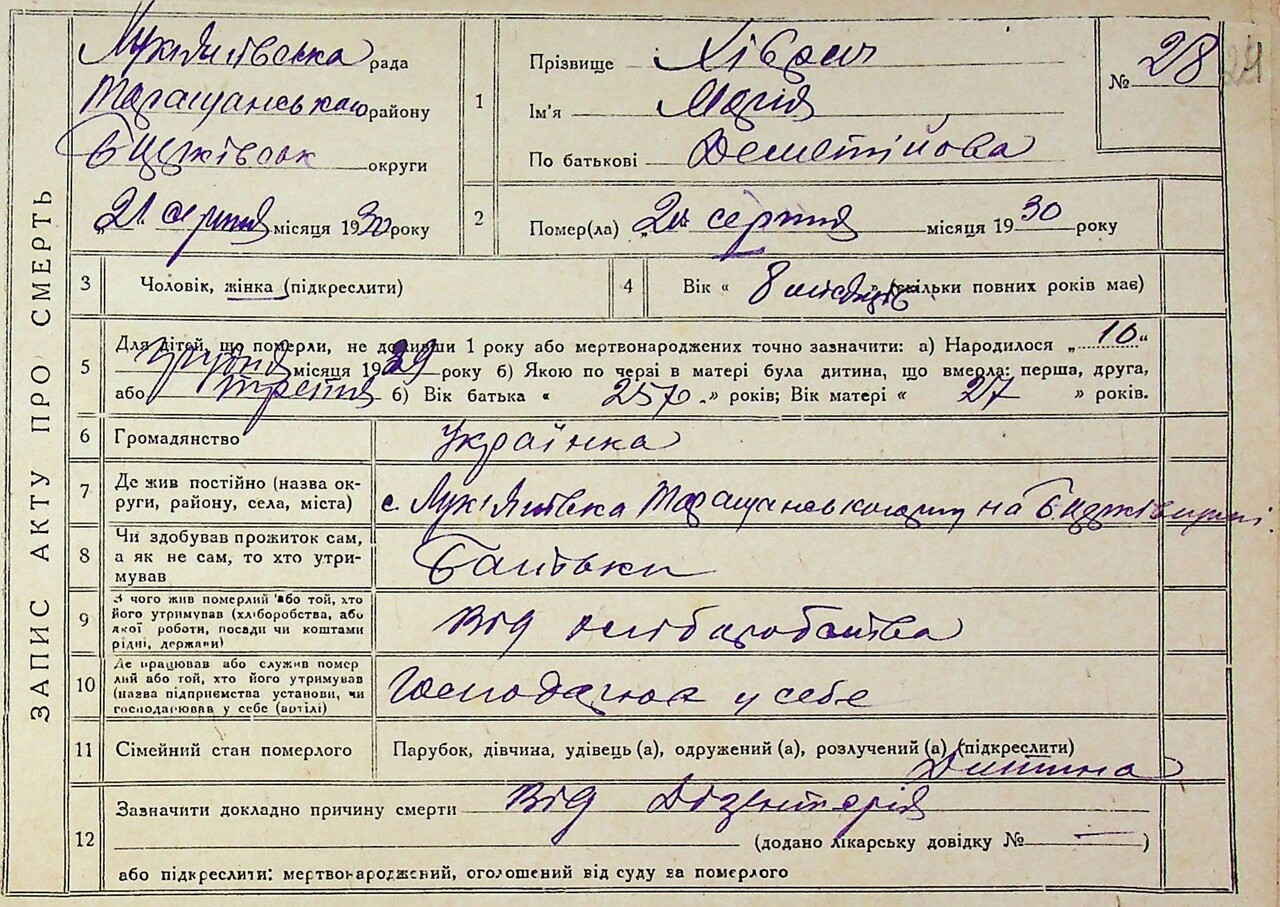 ЗАПИС АКТУ ПРО СМЕРТЬ
Лук'янівська рада
Таращанського району
Б Церківськ округи
21 серпня місяця 1930 року
1
Прізвище
Ім'я Марія
По батькові Дементійова
№ 28
24
2
Помер(ла) „ серпня місяця 1930 року
3
Чоловік, жінка (підкреслити)
4
Вік « 8 місяців » (скільки повних років має)
5
Для дітей, що померли, не доживши 1 року або мертвонароджених точно зазначити: а) Народилося „ 10 “
Грудня місяця 1929 року б) Якою по черзі в матері була дитина, що вмерла: перша, друга,
або третя б) Вік батька « » років; Вік матері « 27 » років.
6
Громадянство
Українка
7
Де жив постійно (назва округи, району, села, міста)
с. Лук'янівка Таращанського на Б.
8
Чи здобував прожиток сам, а як не сам, то хто утримував
Батьки
9
З чого жив померлий або той, хто його утримував (хліборобства, або якої роботи, посади чи коштами рідні, держави)
Від хліборобства
10
Де працював або служив померлий або той, хто його утримував (назва підприємства установи, чи господарював у себе (артілі)
у себе
11
Сімейний стан померлого
Парубок, дівчина, удівець (а), одружений (а), розлучений (а) (підкреслити)
Дитина
12
Зазначити докладно причину смерти Від Дізентерія
(додано лікарську довідку № — )
або підкреслити: мертвонароджений, оголошений від суду за померлого